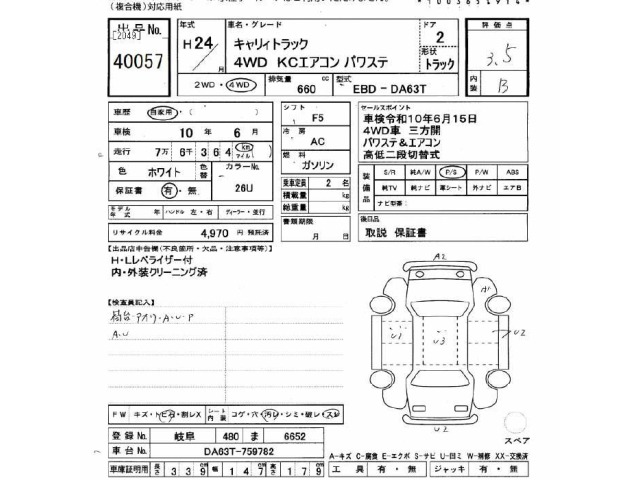 (複合機)対応用紙
出品No.
[2049]
40057
年式
H24/ 月
車名・グレード
キャリィトラック
4WD KCエアコン パワステ
ドア
2
形状
トラック
評価点
3.5
内装
B
2WD・4WD
排気量
660 cc
型式
EBD－DA63T
車歴 自家用・( )
車検 10 年 6 月
走行 7万 6千 364 km マイル
色 ホワイト 色替 カラーNo. 26U
保証書 有・無
モデル年式 年 ハンドル 左・右 ディーラー・並行
リサイクル料金 4,970 円 預託済
シフト F5
冷房 AC
燃料 ガソリン
乗車定員 2 名
積載量 kg
総重量 kg
書類期限
月 日
セールスポイント
車検令和10年6月15日
4WD車 三方開
パワステ&エアコン
高低二段切替式
装備品
S/R 純A/W P/S P/W ABS
純TV 純ナビ 革シート 外ナビ エアB
ナビ型番:
後日品
取説 保証書
【出品店申告欄(不良箇所・欠品・注意事項等)】
H・Lレベライザー付
内・外装クリーニング済
【検査員記入】
荷台・アオリ・A・U・P
A・U
A2
A1
U1
U3
U2
U2
スペア
FW キズ・ヒ有・割レX
シート内装 コゲ・穴・汚レ・シミ・破レ・スレ
登録No. 岐阜 480 ま 6652
車台No. DA63T-759782
車庫証明用 長さ 339 cm 幅 147 cm 高さ 179 cm
工具 有・無 ジャッキ 有・無
A-キズ C-腐食 E-エクボ S-サビ U-凹ミ W-補修 XX-交換済